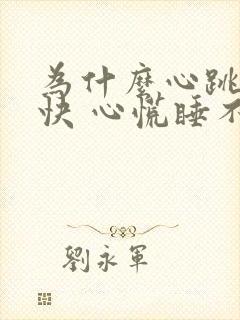 為什麼心跳
快 心慌睡不
劉永軍